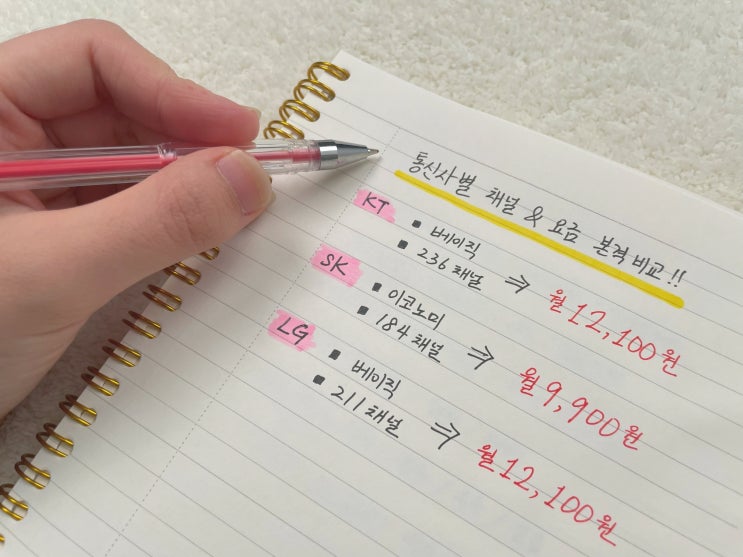 통신사별 채널 & 요금 본격비교!!
KT
▪ 베이직
▪ 236 채널 ⇒ 월 12,100원
SK
▪ 이코노미
▪ 184 채널 ⇒ 월 9,900원
LG
▪ 베이직
▪ 211 채널 ⇒ 월 12,100원